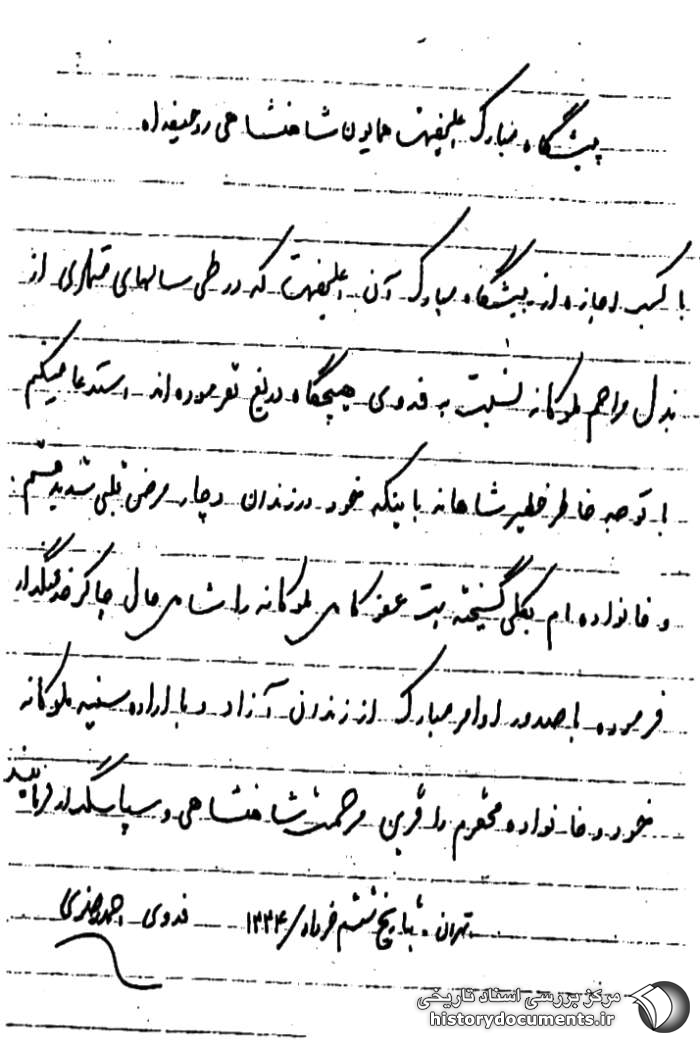 پیشگاه مبارک اعلیحضرت همایون شاهنشاهی روحیفداه
با کسب اجازه از پیشگاه مبارک آن اعلیحضرت که در طی سالهای متمادی از
بذل مراحم ملوکانه نسبت به فدوی هیچگاه دریغ نفرموده‌اند استدعا میکنم
با توجه خاطر خطیر شاهانه باینکه خود در زندان دچار مرض قلبی شدید هستم
و خانواده ام بکلی گسیخته عفو ملوکانه را شامل حال چاکر خدمتگذار
فرموده با صدور اوامر مبارک از زندان آزاد و با اراده سنیه ملوکانه
خود و خانواده محقرم را قرین مرحمت شاهنشاهی و سپاسگذار فرمایند
تهران بتاریخ ششم خرداد/۱۳۳۴ فدوی احمد
مرکز بررسی اسناد تاریخی
historydocuments.ir